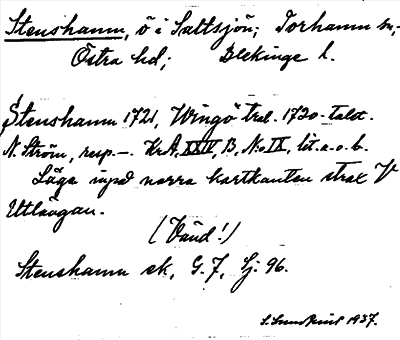 Stenshamn, ö i Saltsjön; Torhamn sn,
Östra hd; Blekinge l.
Stenshamn 1721, Wingö tral. 1720-talet.
N. Ström, resp. —. KrA, XXIV, B, No IX, lit. a. o. b.
Läge inpå norra kartkanten strax V
Utlängan.
(Vänd!)
Stenshamn ek, G. 7, Sj. 96.
S. Sundqvist 1937.